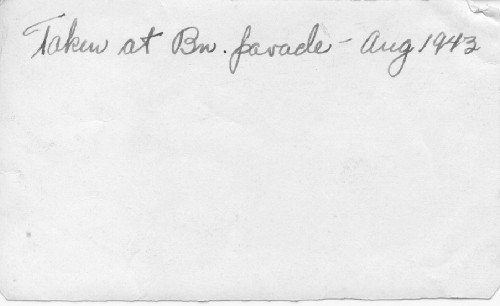 Taken at Bn. parade - Aug 1943